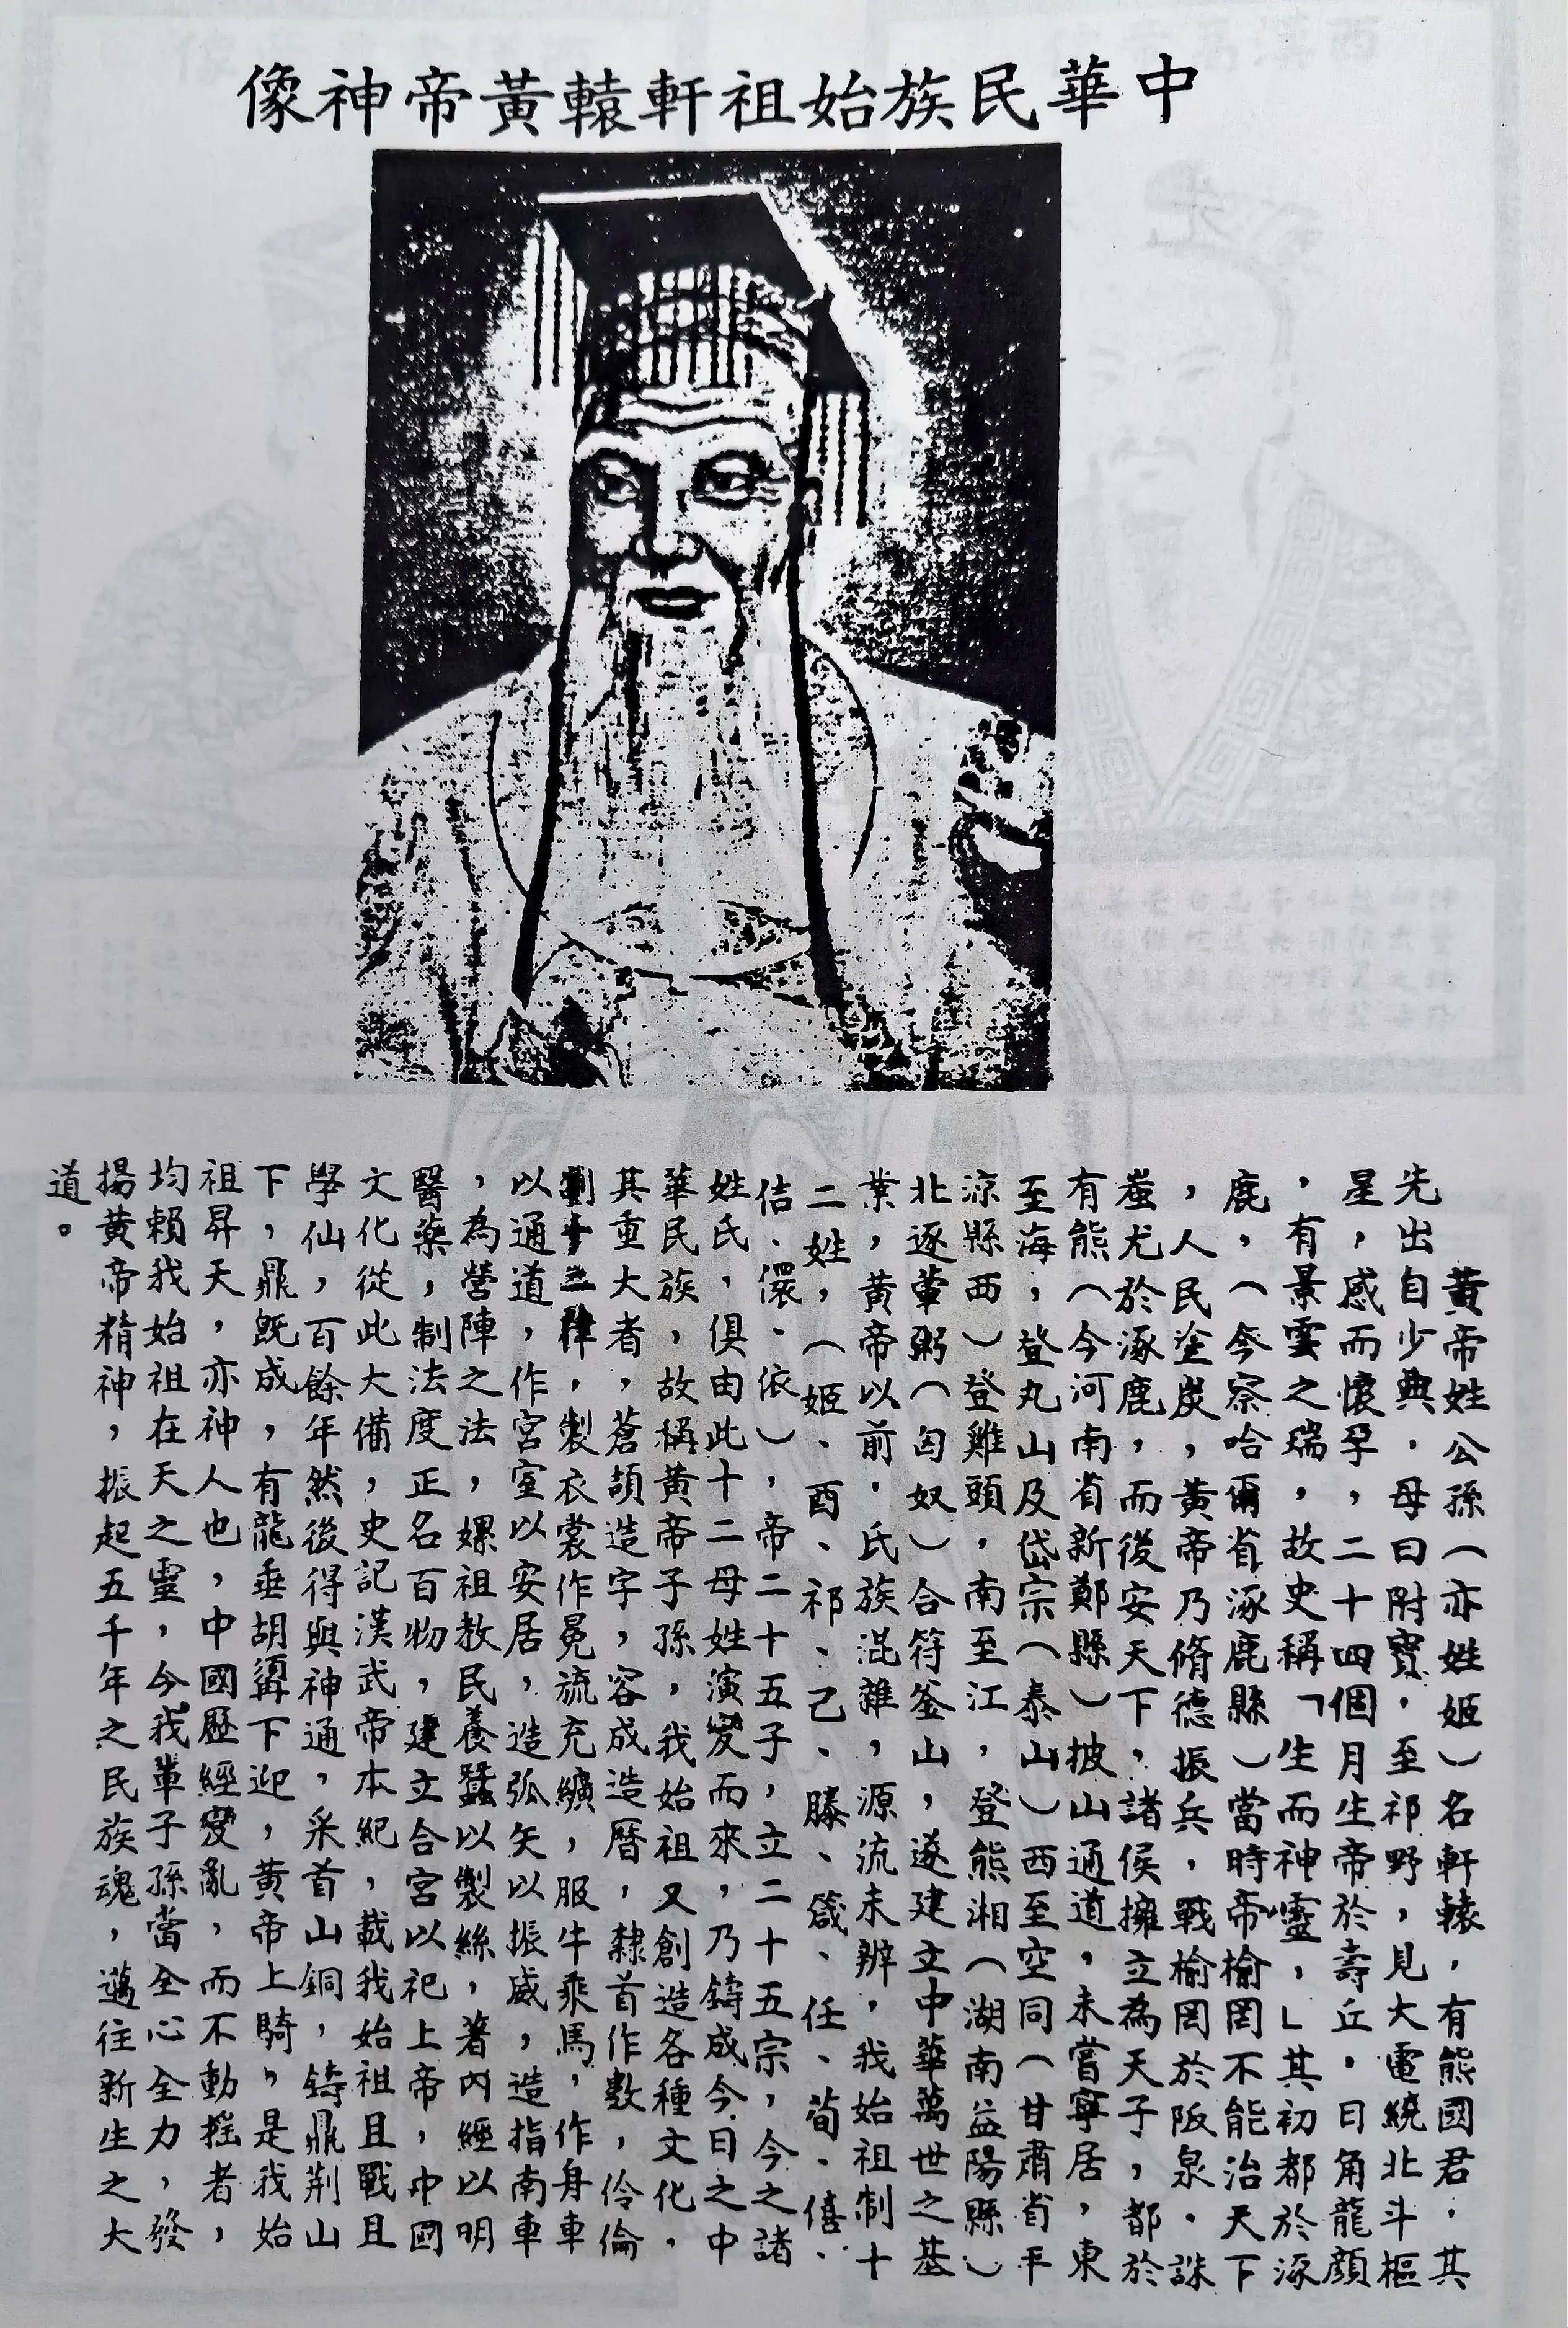 中華民族始祖軒轅黃帝神像
黃帝姓公孫（亦姓姬）名軒轅，有熊國君，其
先出自少典，母曰附寶，至祁野，見大電繞北斗樞
星，感而懷孕，二十四個月生帝於壽丘。日角龍顏
，有景雲之瑞，故史稱「生而神靈，」其初都於涿
鹿，（今察哈爾省涿鹿縣）當時帝榆罔不能治天下
，人民塗炭，黃帝乃脩德振兵，戰榆罔於阪泉。誅
蚩尤於涿鹿，而後安天下，諸侯擁立為天子，都於
有熊（今河南省新鄭縣）披山通道，未嘗寧居，東
至海，登丸山及岱宗（泰山）西至空同（甘肅省平
涼縣西）登雞頭，南至江，登熊湘（湖南益陽縣）
北逐葷粥（匈奴）合符釜山，遂建立中華萬世之基
業，黃帝以前，氏族混雜，源流未辨，我始祖制十
二姓，（姬、酉、祁、己、滕、箴、任、荀、僖、
佶、儇、依），帝二十五子，立二十五宗，今之諸
姓氏，俱由此十二母姓演變而來，乃鑄成今日之中
華民族，故稱黃帝子孫，我始祖又創造各種文化，
其重大者，蒼頡造字，容成造曆，隸首作數，伶倫
製衣裳作冕旒充纊，服牛乘馬，作舟車
以通道，作宮室以安居，造弧矢以振威，造指南車
，為營陣之法，嫘祖教民養蠶以製絲，著內經以明
醫藥，制法度正名百物，建立合宮以祀上帝，中國
文化從此大備，史記漢武帝本紀，載我始祖且戰且
學仙，百餘年然後得與神通，采首山銅，鑄鼎荆山
下，鼎既成，有龍垂胡髯下迎，黃帝上騎，是我始
祖昇天，亦神人也，中國歷經變亂，而不動搖者，
均賴我始祖在天之靈，今我輩子孫當全心全力，發
揚黃帝精神，振起五千年之民族魂，邁往新生之大
道。